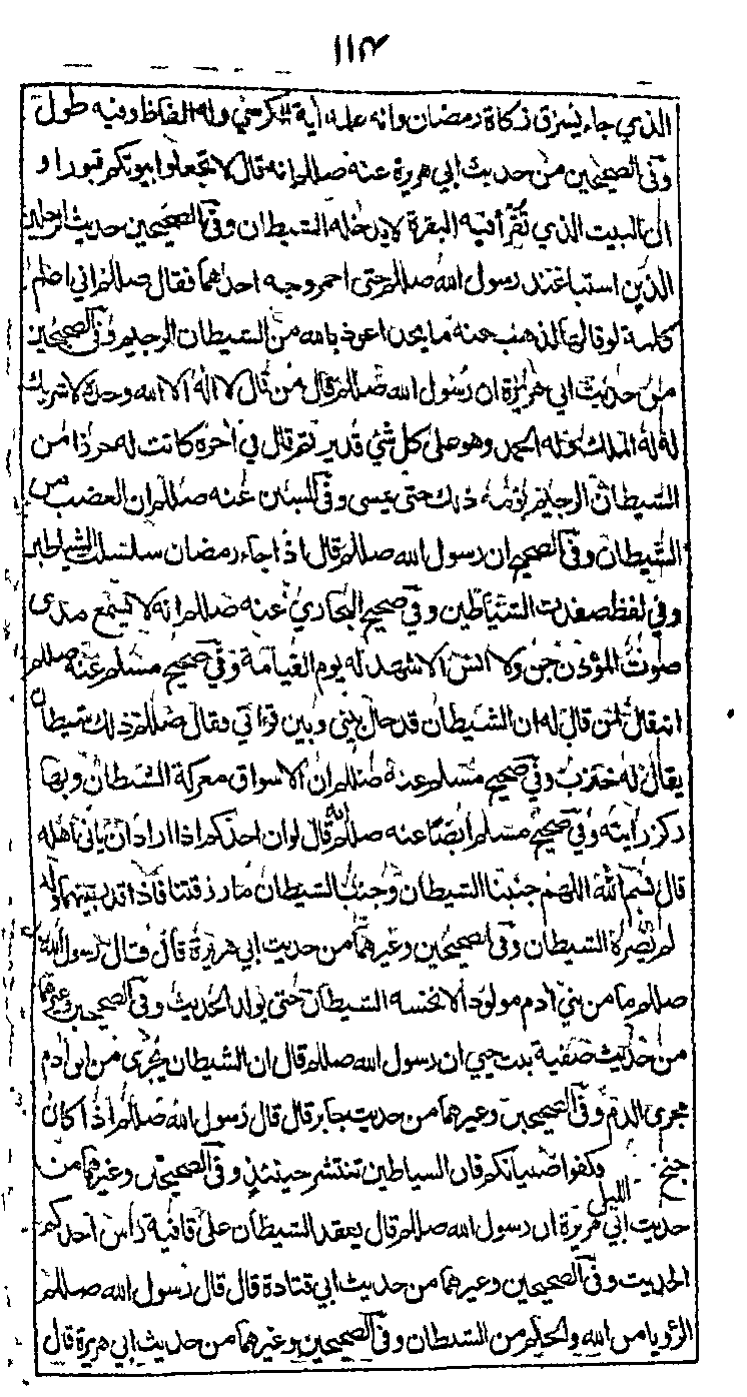 ١١٣
الذي جاء يسرق زكاة رمضان وانه علمه آية الكرسي وله الفاظ وفيه طول
وفي الصحيحين من حديث ابي هريرة عنه صللم انه قال لا تجعلوا بيوتكم قبورا و
ان البيت الذي تقرأ فيه البقرة لا يدخله الشيطان وفي الصحيحين حديث الرجلين
الذين استبا عند رسول الله صللم حتى احمر وجه احدهما فقال صللم اني اعلم
كلمة لو قالها لذهب عنه ما يجد اعوذ بالله من الشيطان الرجيم وفي الصحيحين
من حديث ابي هريرة ان رسول الله صللم قال من قال لا اله الا الله وحده لا شريك
له له الملك وله الحمد وهو على كل شئ قدير ثم قال في آخره كانت له حرزا من
الشيطان الرجيم يومه ذلك حتى يمسى وفي السنن عنه صللم ان الغضب من
الشيطان وفي الصحيح ان رسول الله صللم قال اذا جاء رمضان سلسلت الشياطين
وفي لفظ صفدت الشياطين وفي صحيح البخاري عنه صللم انه لا يسمع مدى
صوت المؤذن جن ولا انس الا شهد له يوم القيامة وفي صحيح مسلم عنه صللم
انه قال لمن قال له ان الشيطان قد حال بيني وبين قراتي فقال صللم ذلك شيطان
يقال له خنزب وفي صحيح مسلم عنه صللم ان الاسواق معركة الشيطان وبها
ركز رايته وفي صحيح مسلم ايضا عنه صللم انه قال لو ان احدكم اذا اراد ان ياتي اهله
قال بسم الله اللهم جنبنا الشيطان وجنب الشيطان ما رزقتنا فاذا قدر بينهما ولد
لم يضره الشيطان وفي الصحيحين وغيرهما من حديث ابي هريرة قال قال رسول الله
صللم ما من بني آدم مولود الا نخسه الشيطان حتى يولد الحديث وفي الصحيحين وغيرهما
من حديث صفية بنت حيي ان رسول الله صللم قال ان الشيطان يجرى من ابن آدم
مجرى الدم وفي الصحيحين وغيرهما من حديث جابر قال قال رسول الله صللم اذا كان
جنح الليل فكفوا صبيانكم فان الشياطين تنتشر حينئذ وفي الصحيحين وغيرهما من
حديث ابي هريرة ان رسول الله صللم قال يعقد الشيطان على قافية رأس احدكم
الحديث وفي الصحيحين وغيرهما من حديث ابي قتادة قال قال رسول الله صللم
الرؤيا من الله والحلم من الشيطان وفي الصحيحين وغيرهما من حديث ابي هريرة قال